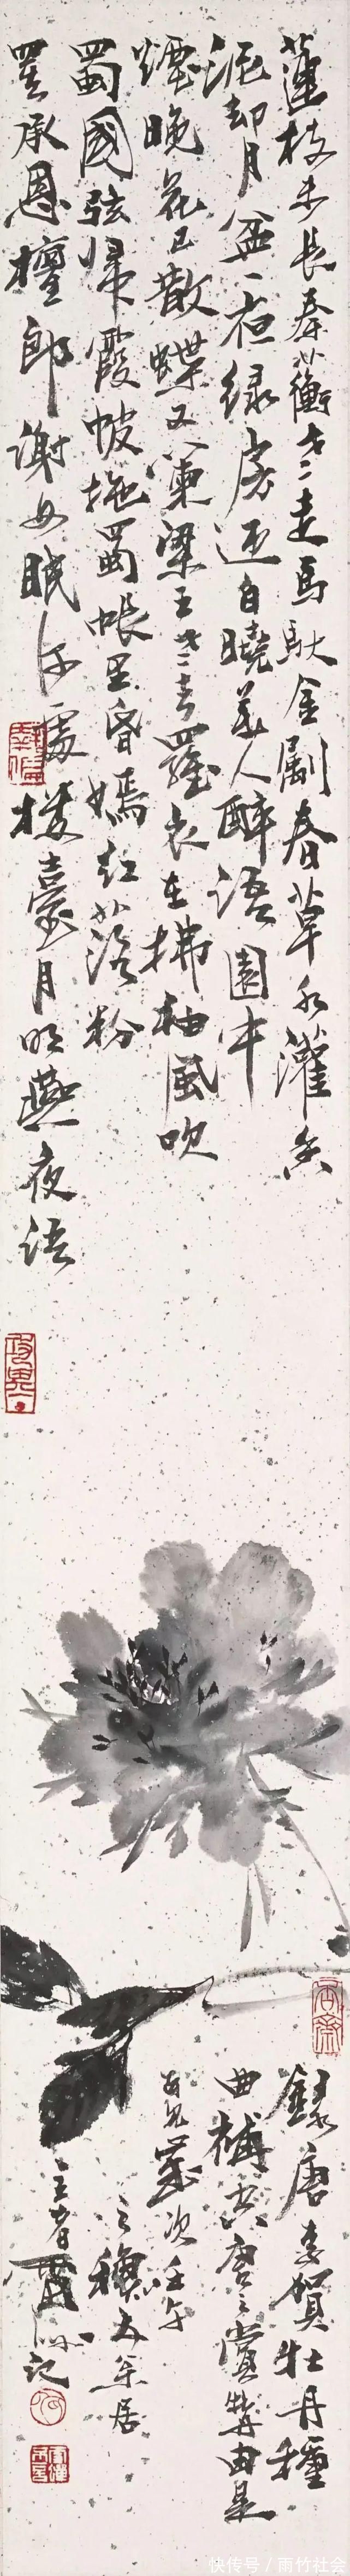 蓮枝未長秦蘅老走馬馱金劚春草水灌香
泥却月盆一夜緑房迎白曉美人醉語園中
煙晚花已散蝶又闌梁王老去羅衣在拂袖風吹
蜀國弦歸霞帔拖蜀帳里昏嫣紅落粉
罷承恩檀郎謝女眠何處樓臺月明燕夜語
錄唐李賀牡丹種
曲補空唐之賞 由是
可見歲次壬午
之穗 居
記
快传号 / 雨竹社会